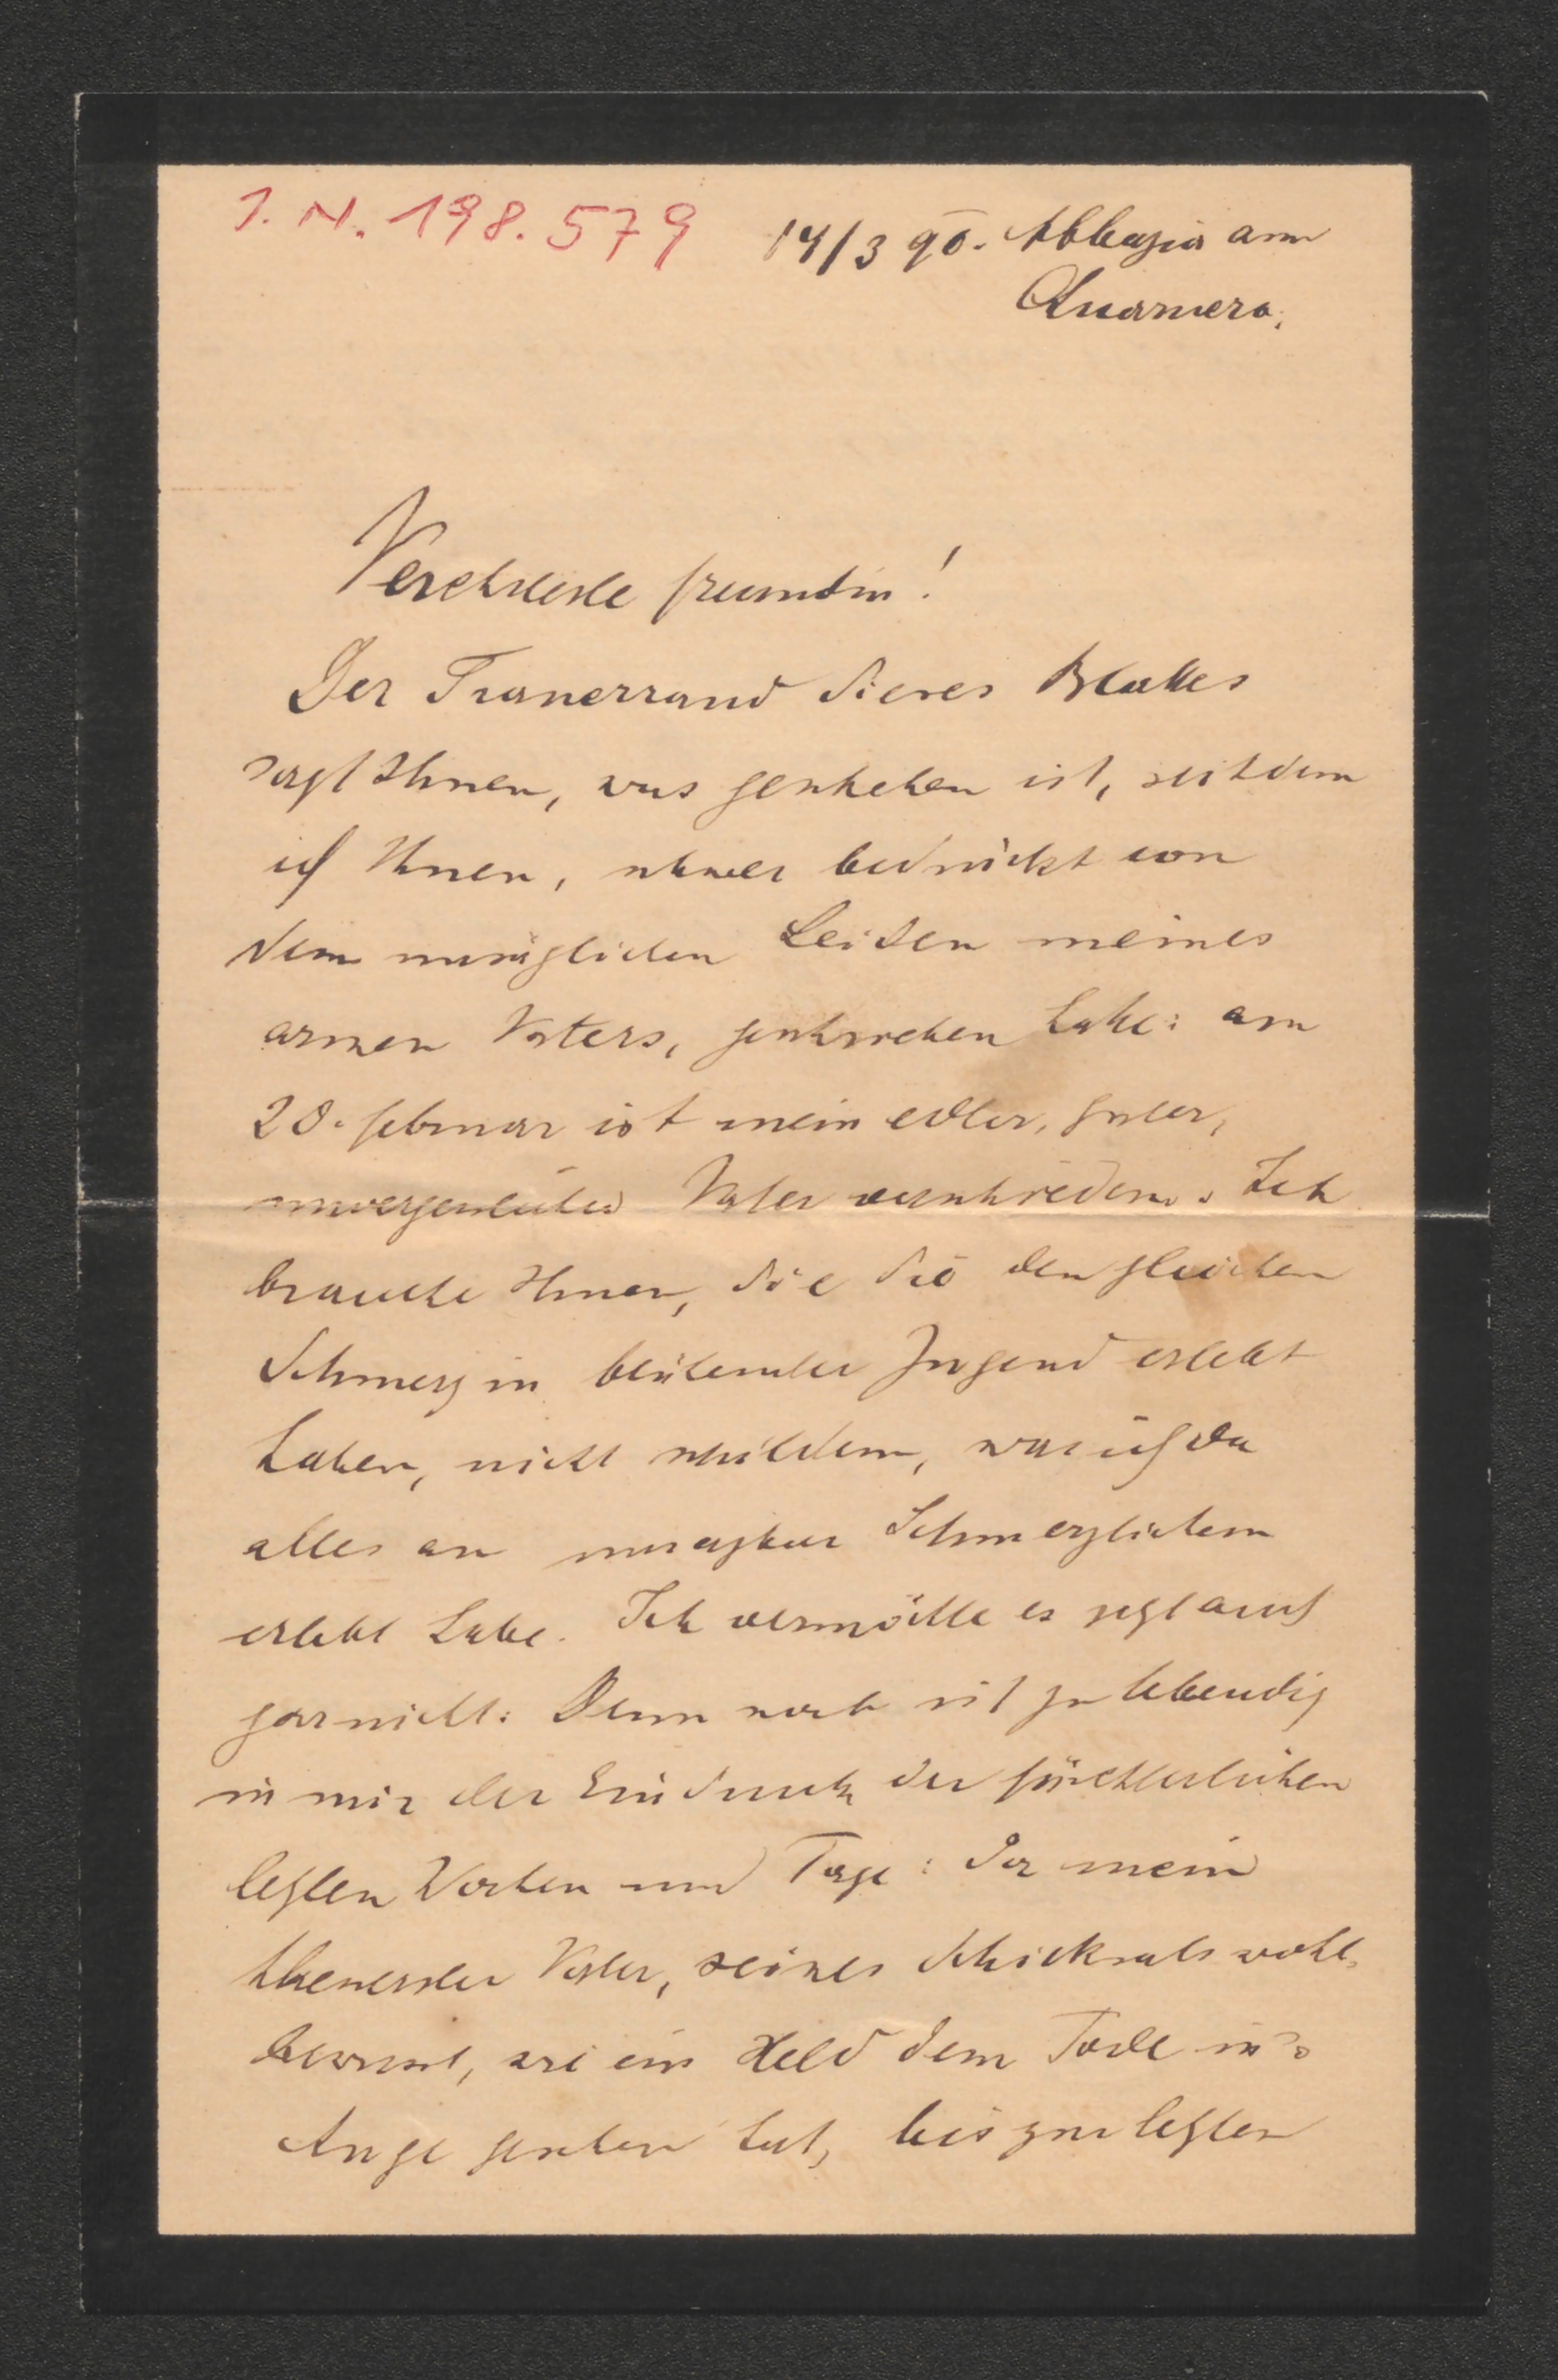 I. N. 198.579
14/3 90. Abbazia am
Quarnero.
Verehrteste Freundin!
Der Trauerrand dieses Blattes
sagt Ihnen, was geschehen ist, seitdem
ich Ihnen, schwer bedrückt von
dem unsäglichen Leiden meines
armen Vaters, geschrieben habe: am
20. Februar ist mein edler, guter,
unvergesslicher Vater verschieden. Ich
brauche Ihnen, die Sie den gleichen
Schmerz in blühender Jugend erlebt
haben, nicht schildern, was ich da
alles an unsagbar Schmerzlichem
erlebt habe. Ich vermöchte es jetzt auch
gar nicht: Denn noch ist zu lebendig
in mir der Eindruck der fürchterlichen
letzten Wochen und Tage: da mein
theuerster Vater, seines Schicksals wohl
bewusst, wie ein Held dem Tode in's
Auge gesehen hat, bis zur letzten